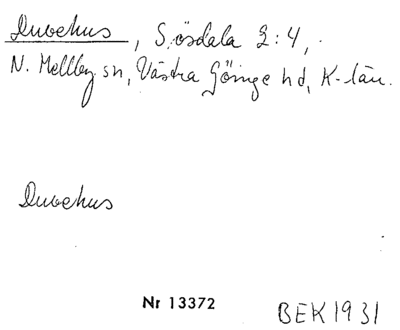 Duvehus, Sösdala 2:4,.
N. Mellby sn, Västra Göinge hd, K-län.
Duvehus
Nr 13372
BEK 1931